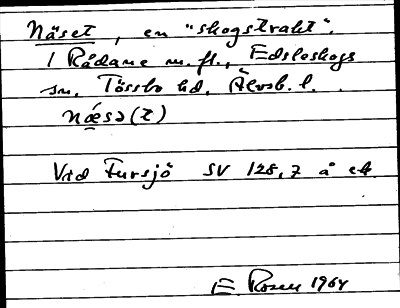 Näset, en "skogstrakt".
i Rådane m. fl., Edsleskogs
sn. Tössbo hd. Älvsb. l.
næsə(t)
Vid Fursjö SV 128,7 å ek.
E. Rosen 1964